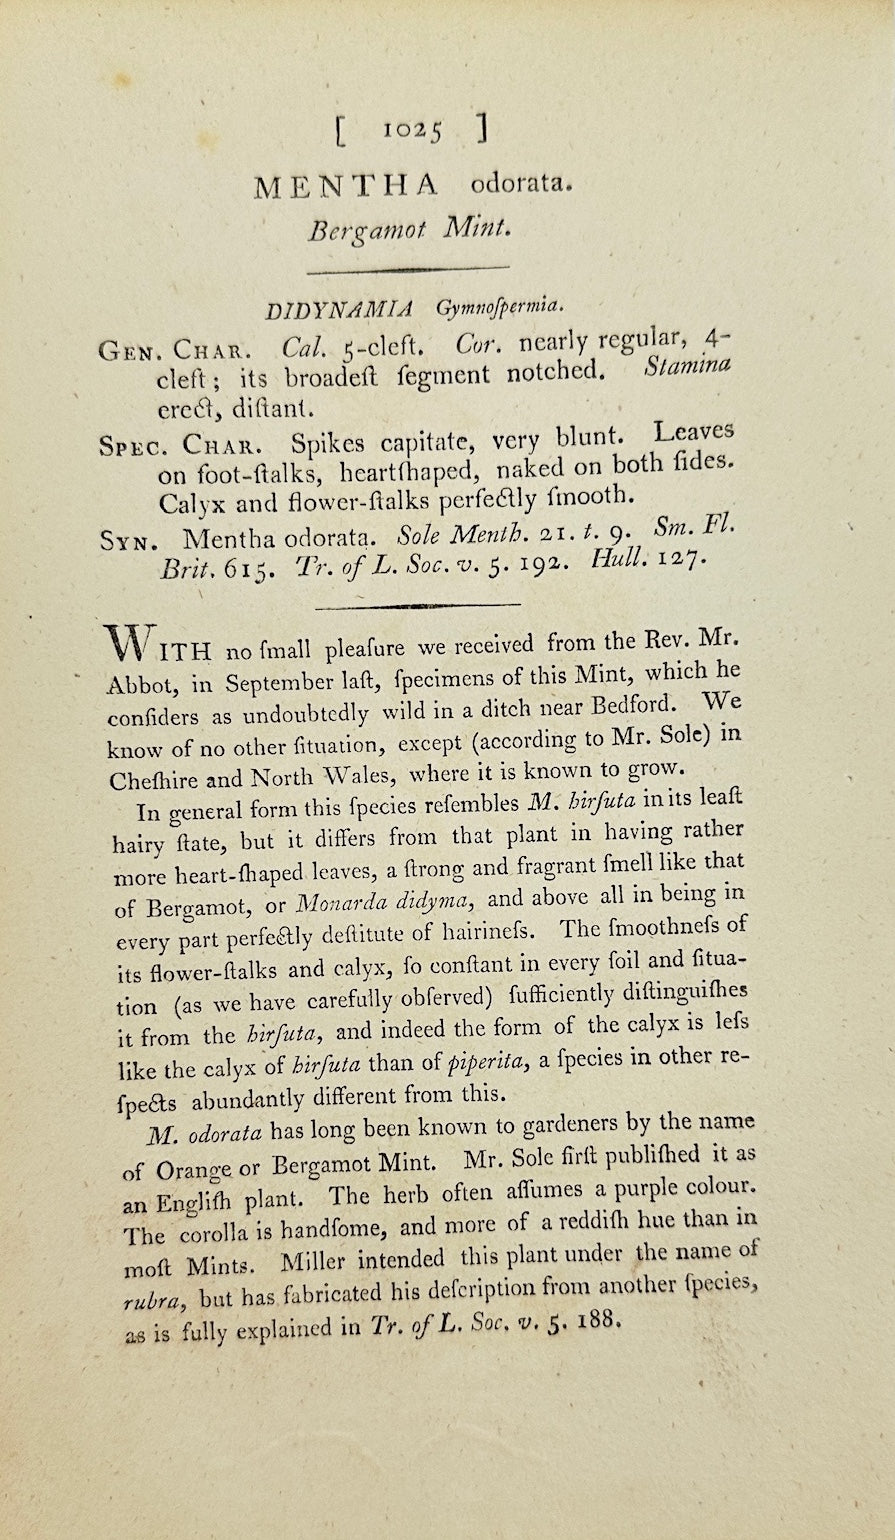 [ 1025 ]
MENTHA odorata.
Bergamot Mint.
DIDYNAMIA Gymnoſpermia.
GEN. CHAR. Cal. 5-cleft. Cor. nearly regular, 4-
cleft; its broadeſt ſegment notched. Stamina
erect, diſtant.
SPEC. CHAR. Spikes capitate, very blunt. Leaves
on foot-ſtalks, heartſhaped, naked on both ſides.
Calyx and flower-ſtalks perfectly ſmooth.
SYN. Mentha odorata. Sole Menth. 21. t. 9. Sm. Fl.
Brit. 615. Tr. of L. Soc. v. 5. 192. Hull. 127.
WITH no ſmall pleaſure we received from the Rev. Mr.
Abbot, in September laſt, ſpecimens of this Mint, which he
conſiders as undoubtedly wild in a ditch near Bedford. We
know of no other ſituation, except (according to Mr. Sole) in
Cheſhire and North Wales, where it is known to grow.
In general form this ſpecies reſembles M. hirſuta in its leaſt
hairy ſtate, but it differs from that plant in having rather
more heart-ſhaped leaves, a ſtrong and fragrant ſmell like that
of Bergamot, or Monarda didyma, and above all in being in
every part perfectly deſtitute of hairineſs. The ſmoothneſs of
its flower-ſtalks and calyx, ſo conſtant in every ſoil and ſitua-
tion (as we have carefully obſerved) ſufficiently diſtinguiſhes
it from the hirſuta, and indeed the form of the calyx is leſs
like the calyx of hirſuta than of piperita, a ſpecies in other re-
ſpects abundantly different from this.
M. odorata has long been known to gardeners by the name
of Orange or Bergamot Mint. Mr. Sole firſt publiſhed it as
an Engliſh plant. The herb often aſſumes a purple colour.
The corolla is handſome, and more of a reddiſh hue than in
moſt Mints. Miller intended this plant under the name of
rubra, but has fabricated his deſcription from another ſpecies,
as is fully explained in Tr. of L. Soc. v. 5. 188.